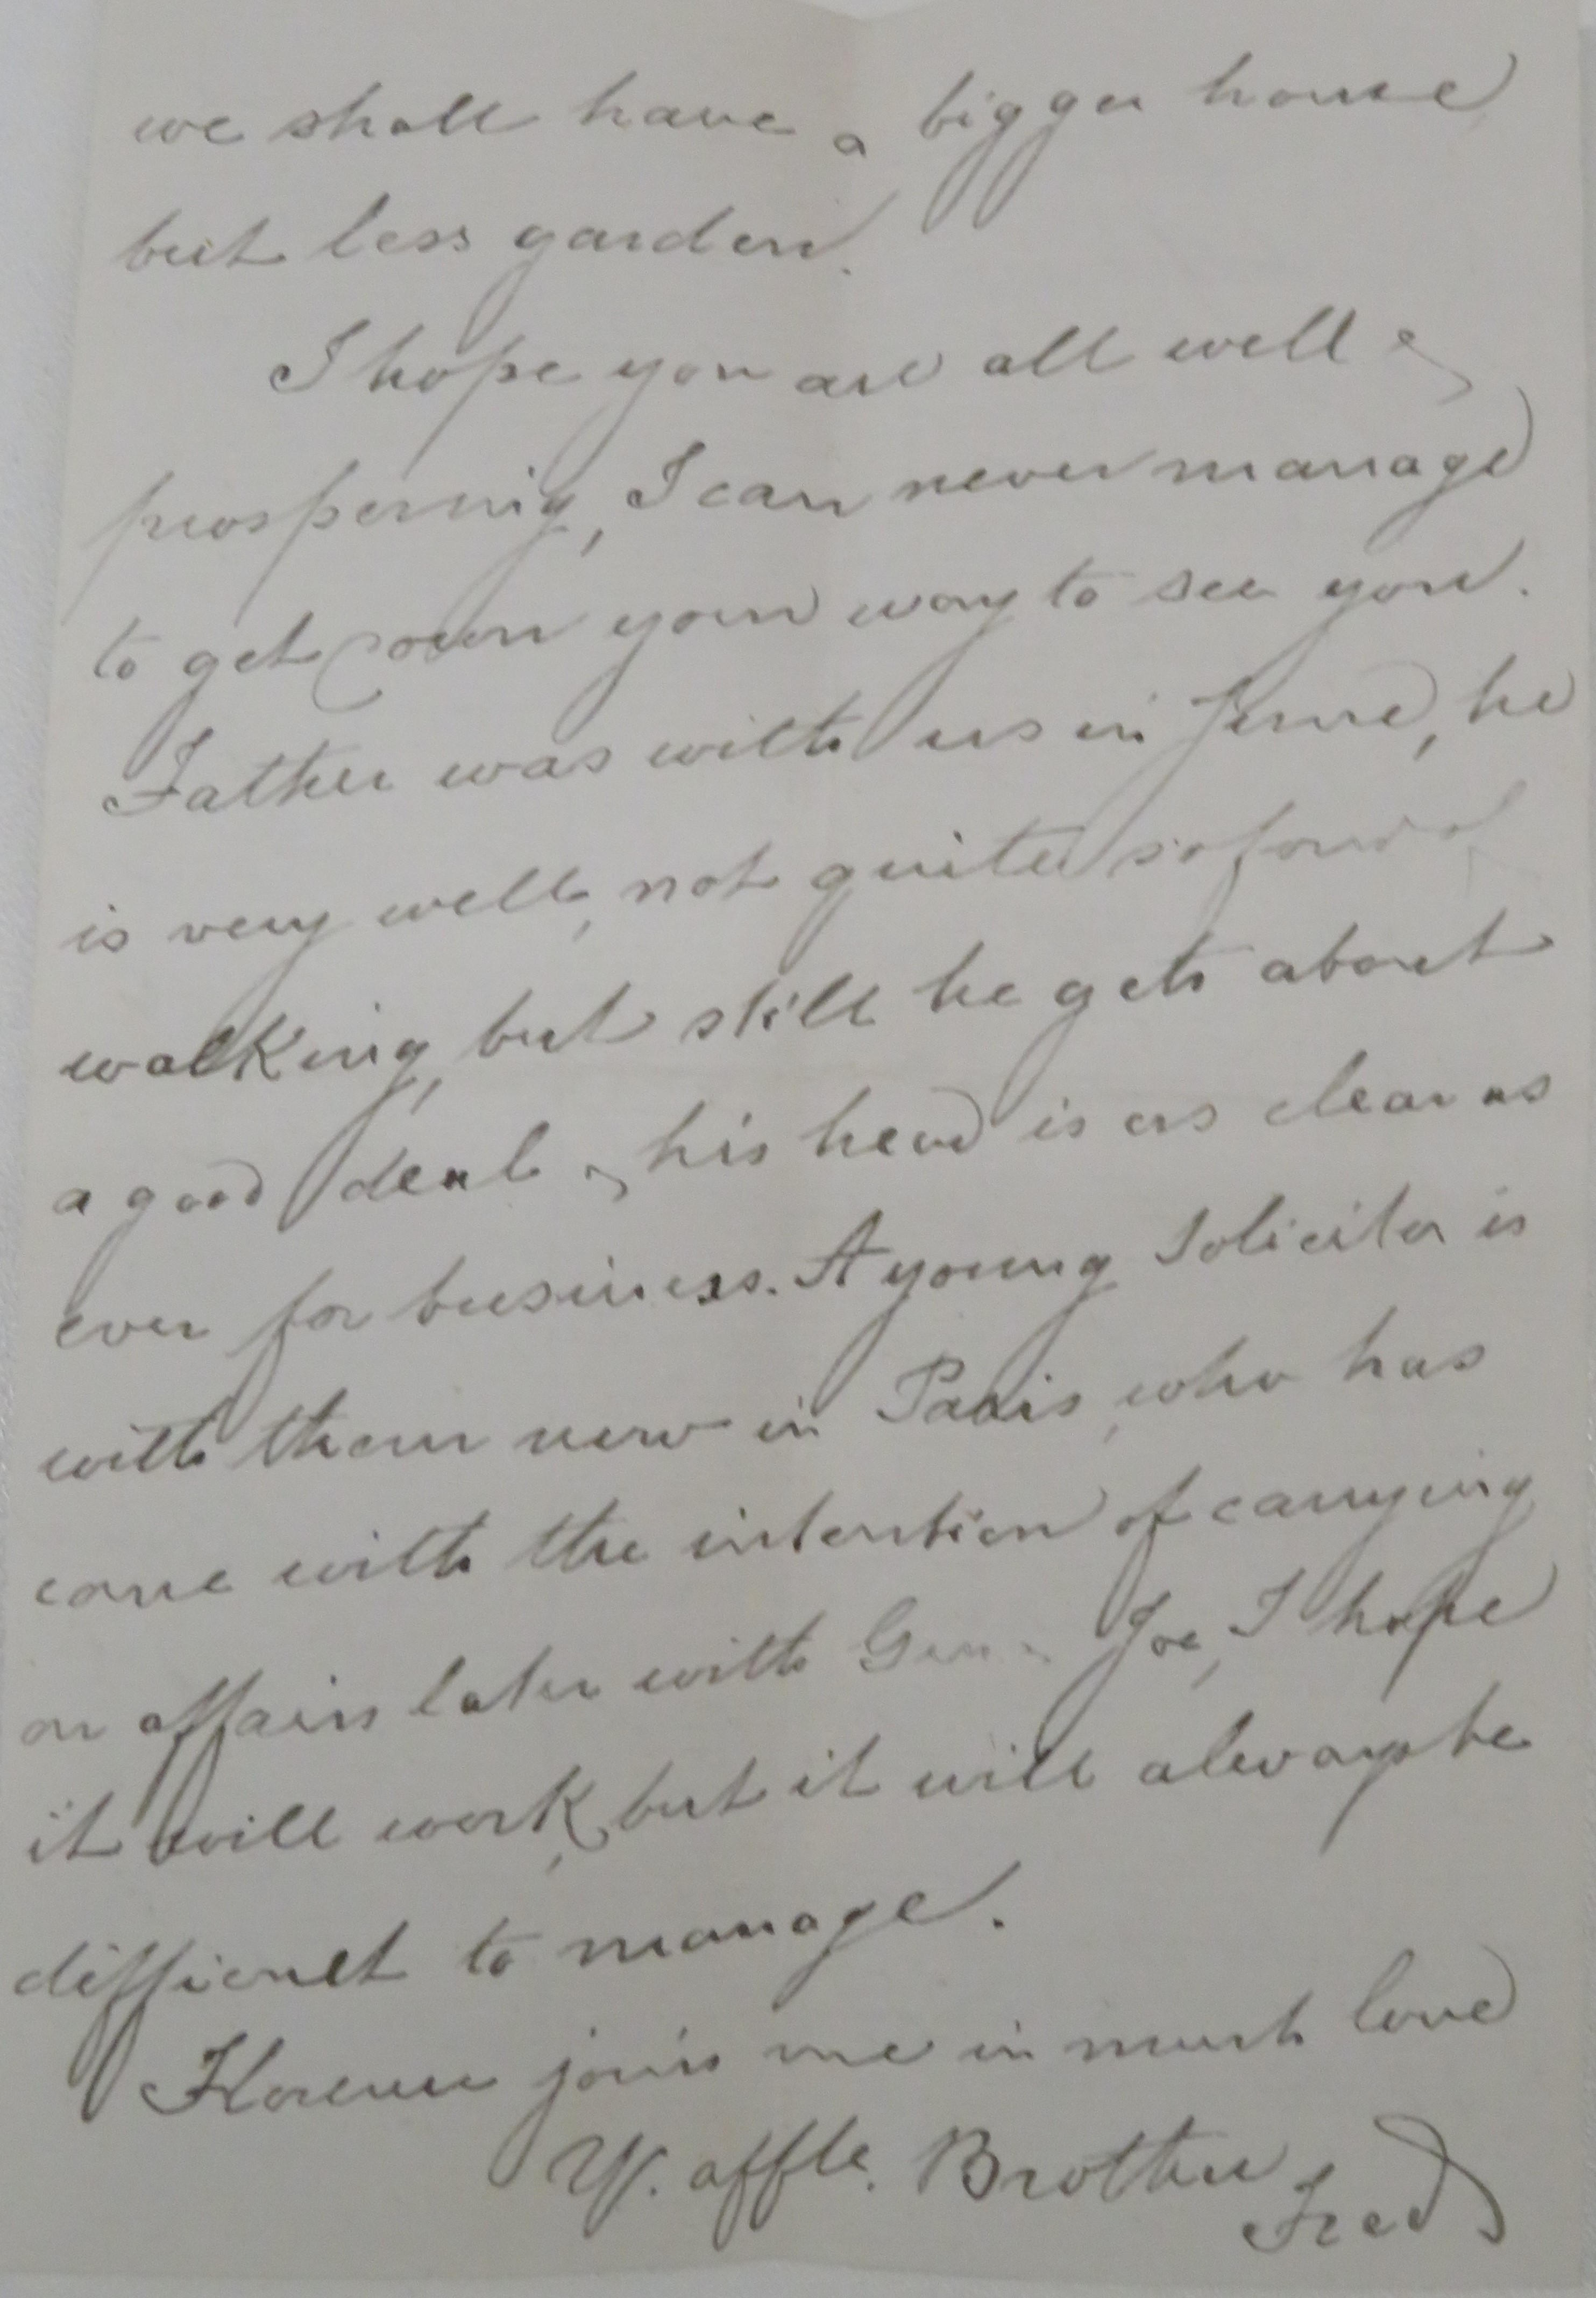 we shall have a bigger house
but less garden.
I hope you are all well &
prospering, I can never manage
to get over your way to see you.
Father was with us in June, he
is very well, not quite so fond of
walking, but still he gets about
a good deal & his head is as clear as
ever for business. A young Solicitor is
with them now in Paris, who has
come with the intention of carrying
on affairs later with Joe, I hope
it will work, but it will always be
difficult to manage.
Florence joins me in much love
Yr. affte. Brother
Fred